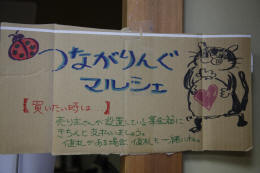 つながりんぐ
マルシェ
【買いたい時は…】
売り主さんが設置している募金箱に
きちんと支払いましょう。
値札がある場合、値札も一緒にネ。